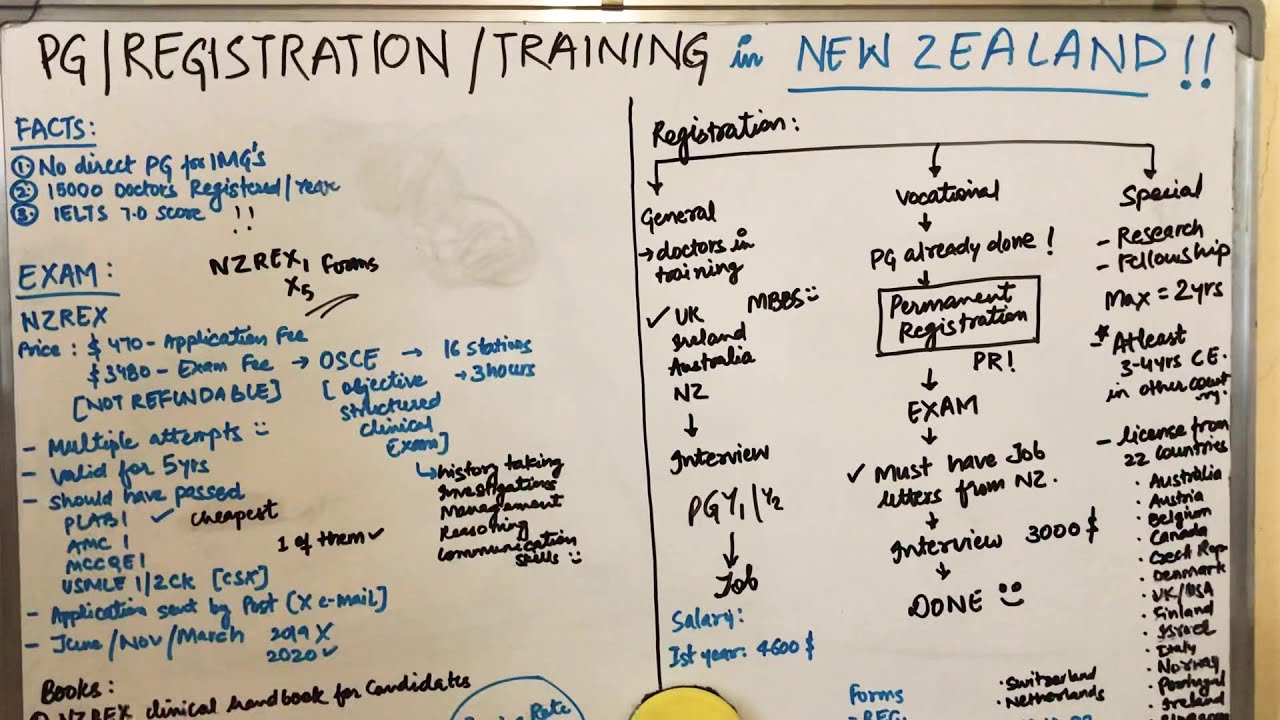 PG/REGISTRATION/TRAINING in NEW ZEALAND!!
FACTS:
① No direct PG for IMG's
② 15000 Doctors Registered/Year
③ IELTS 7.0 score !!
EXAM:
NZREX, forms
X5
NZREX
Price: $ 470 - Application Fee
$ 3480 - Exam Fee → OSCE → 16 stations
→ 3 hours
[NOT REFUNDABLE]
[objective
structured
clinical
Exam]
- Multiple attempts
- Valid for 5yrs
- should have passed
PLAB1 ✓ cheapest
AMC 1
MCCQE1
USMLE 1/2CK [CSX]
1 of them ✓
history taking
Investigations
Management
Reasoning
communication
skills
- Application sent by Post [X e-Mail]
- June/Nov/March 2019 X
2020 ✓
Books:
NZREX clinical handbook for Candidates
Rate
Registration:
General
→ doctors in
training
✓ UK MBBS
Ireland
Australia
NZ
↓
Interview
PGY1/Y2
↓
Job
Salary:
Ist year: 4600 $
Vocational
↓
PG already done!
↓
Permanent
Registration
PR!
↓
EXAM
↓
✓ Must have Job
letters from NZ.
↓
Interview 3000 $
↓
DONE
Forms
- REG
Special
- Research
- Fellowship
Max = 2yrs
* Atleast
3-4yrs C.E.
in other country.
- license from
22 countries
· Australia
· Austria
· Belgium
· Canada
· Czech Rep
· Denmark
· UK/USA
· Finland
· Israel
· Italy
· Norway
· Portugal
· Ireland
· Switzerland
· Netherlands